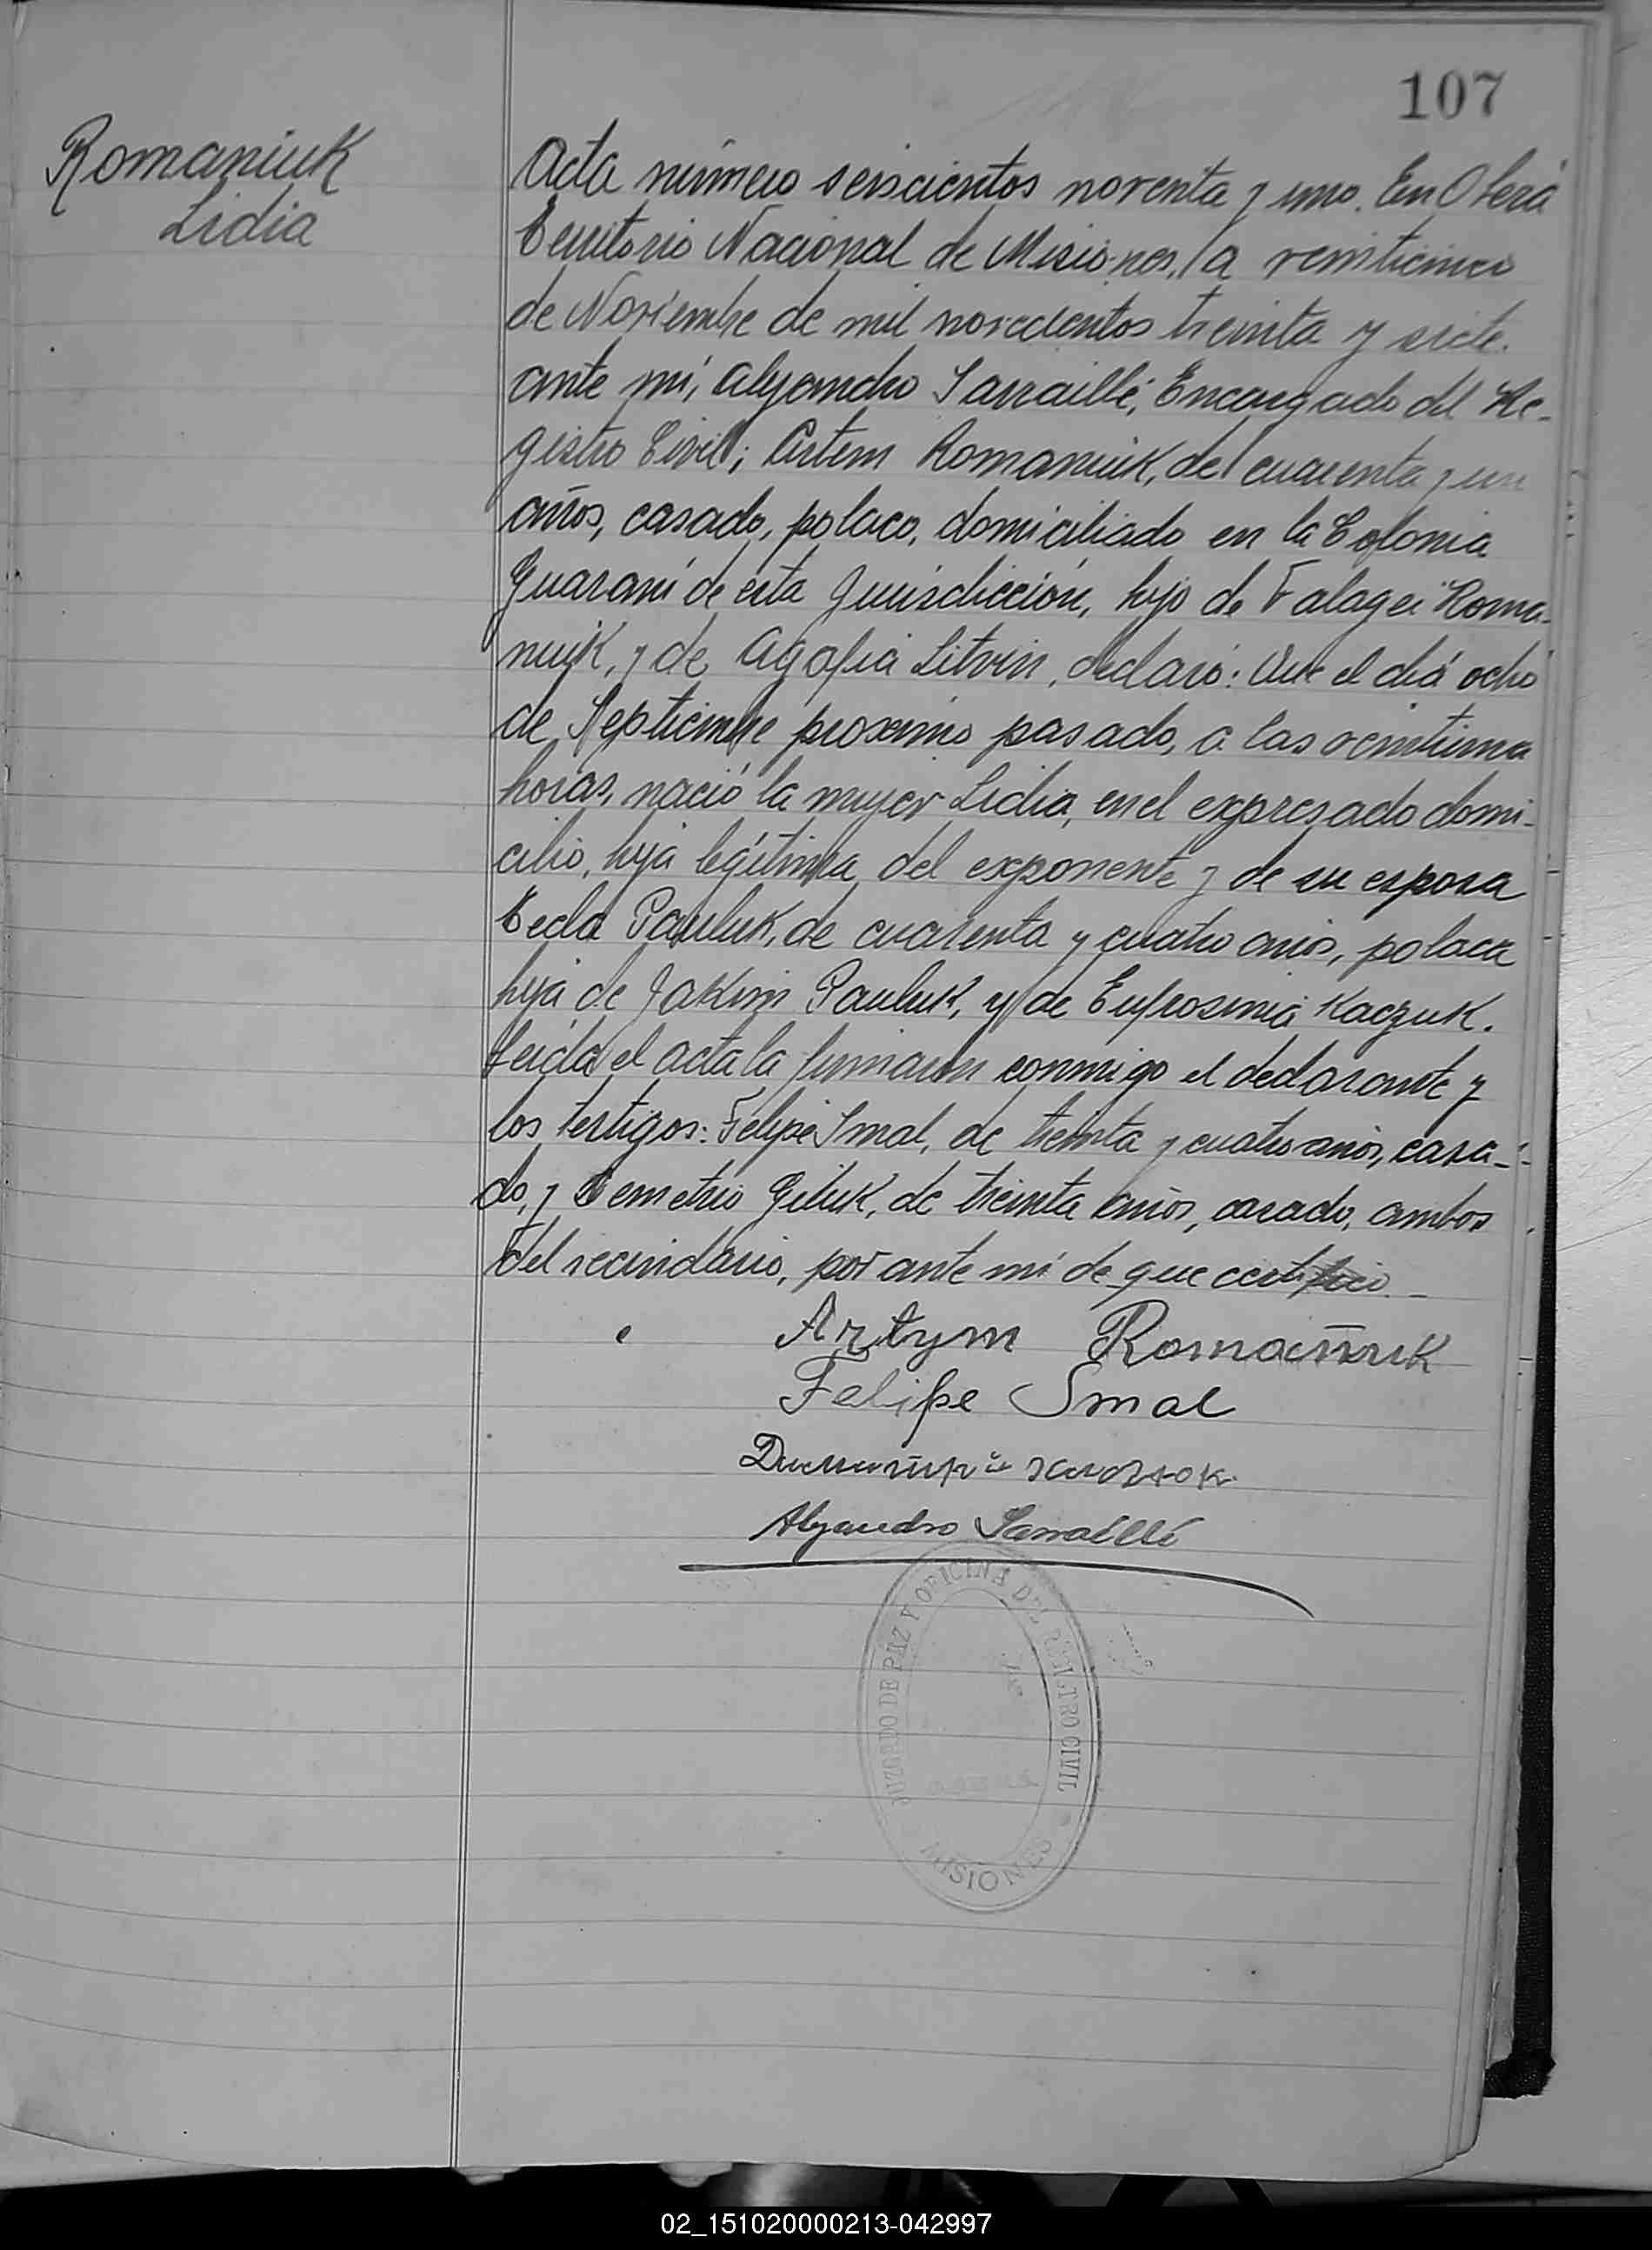 107
Romaniuk
Lidia
Acta número seiscientos noventa y uno. En Oberá
Territorio Nacional de Misiones, a veinticinco
de Noviembre de mil novecientos treinta y siete.
ante mí, Alejandro Sarraillé, Encargado del Re-
gistro Civil; Artem Romaniuk, de cuarenta y un
años, casado, polaco, domiciliado en la Colonia
Guaraní de esta Jurisdicción, hijo de Falagei Roma-
niuk, y de Agafia Litvin, declaró: Que el día ocho
de Septiembre proximo pasado, a las veintiuna
horas, nació la mujer Lidia, en el expresado domi-
cilio, hija legítima del exponente y de su esposa
Tecla Pauluk, de cuarenta y cuatro años, polaca
hija de Jakim Pauluk, y de Eufrosinia Kaczuk.
Leída el acta la firmaron conmigo el declarante y
los testigos: Felipe Smal, de treinta y cuatro años, casa-
do, y Demetrio Giluk, de treinta años, casado, ambos
del vecindario, por ante mí de que certifico.
Artym Romaniuk
Felipe Smal
Alejandro Sarraillé
JUZGADO DE PAZ Y OFICINA DEL REGISTRO CIVIL
MISIONES
02_151020000213-042997